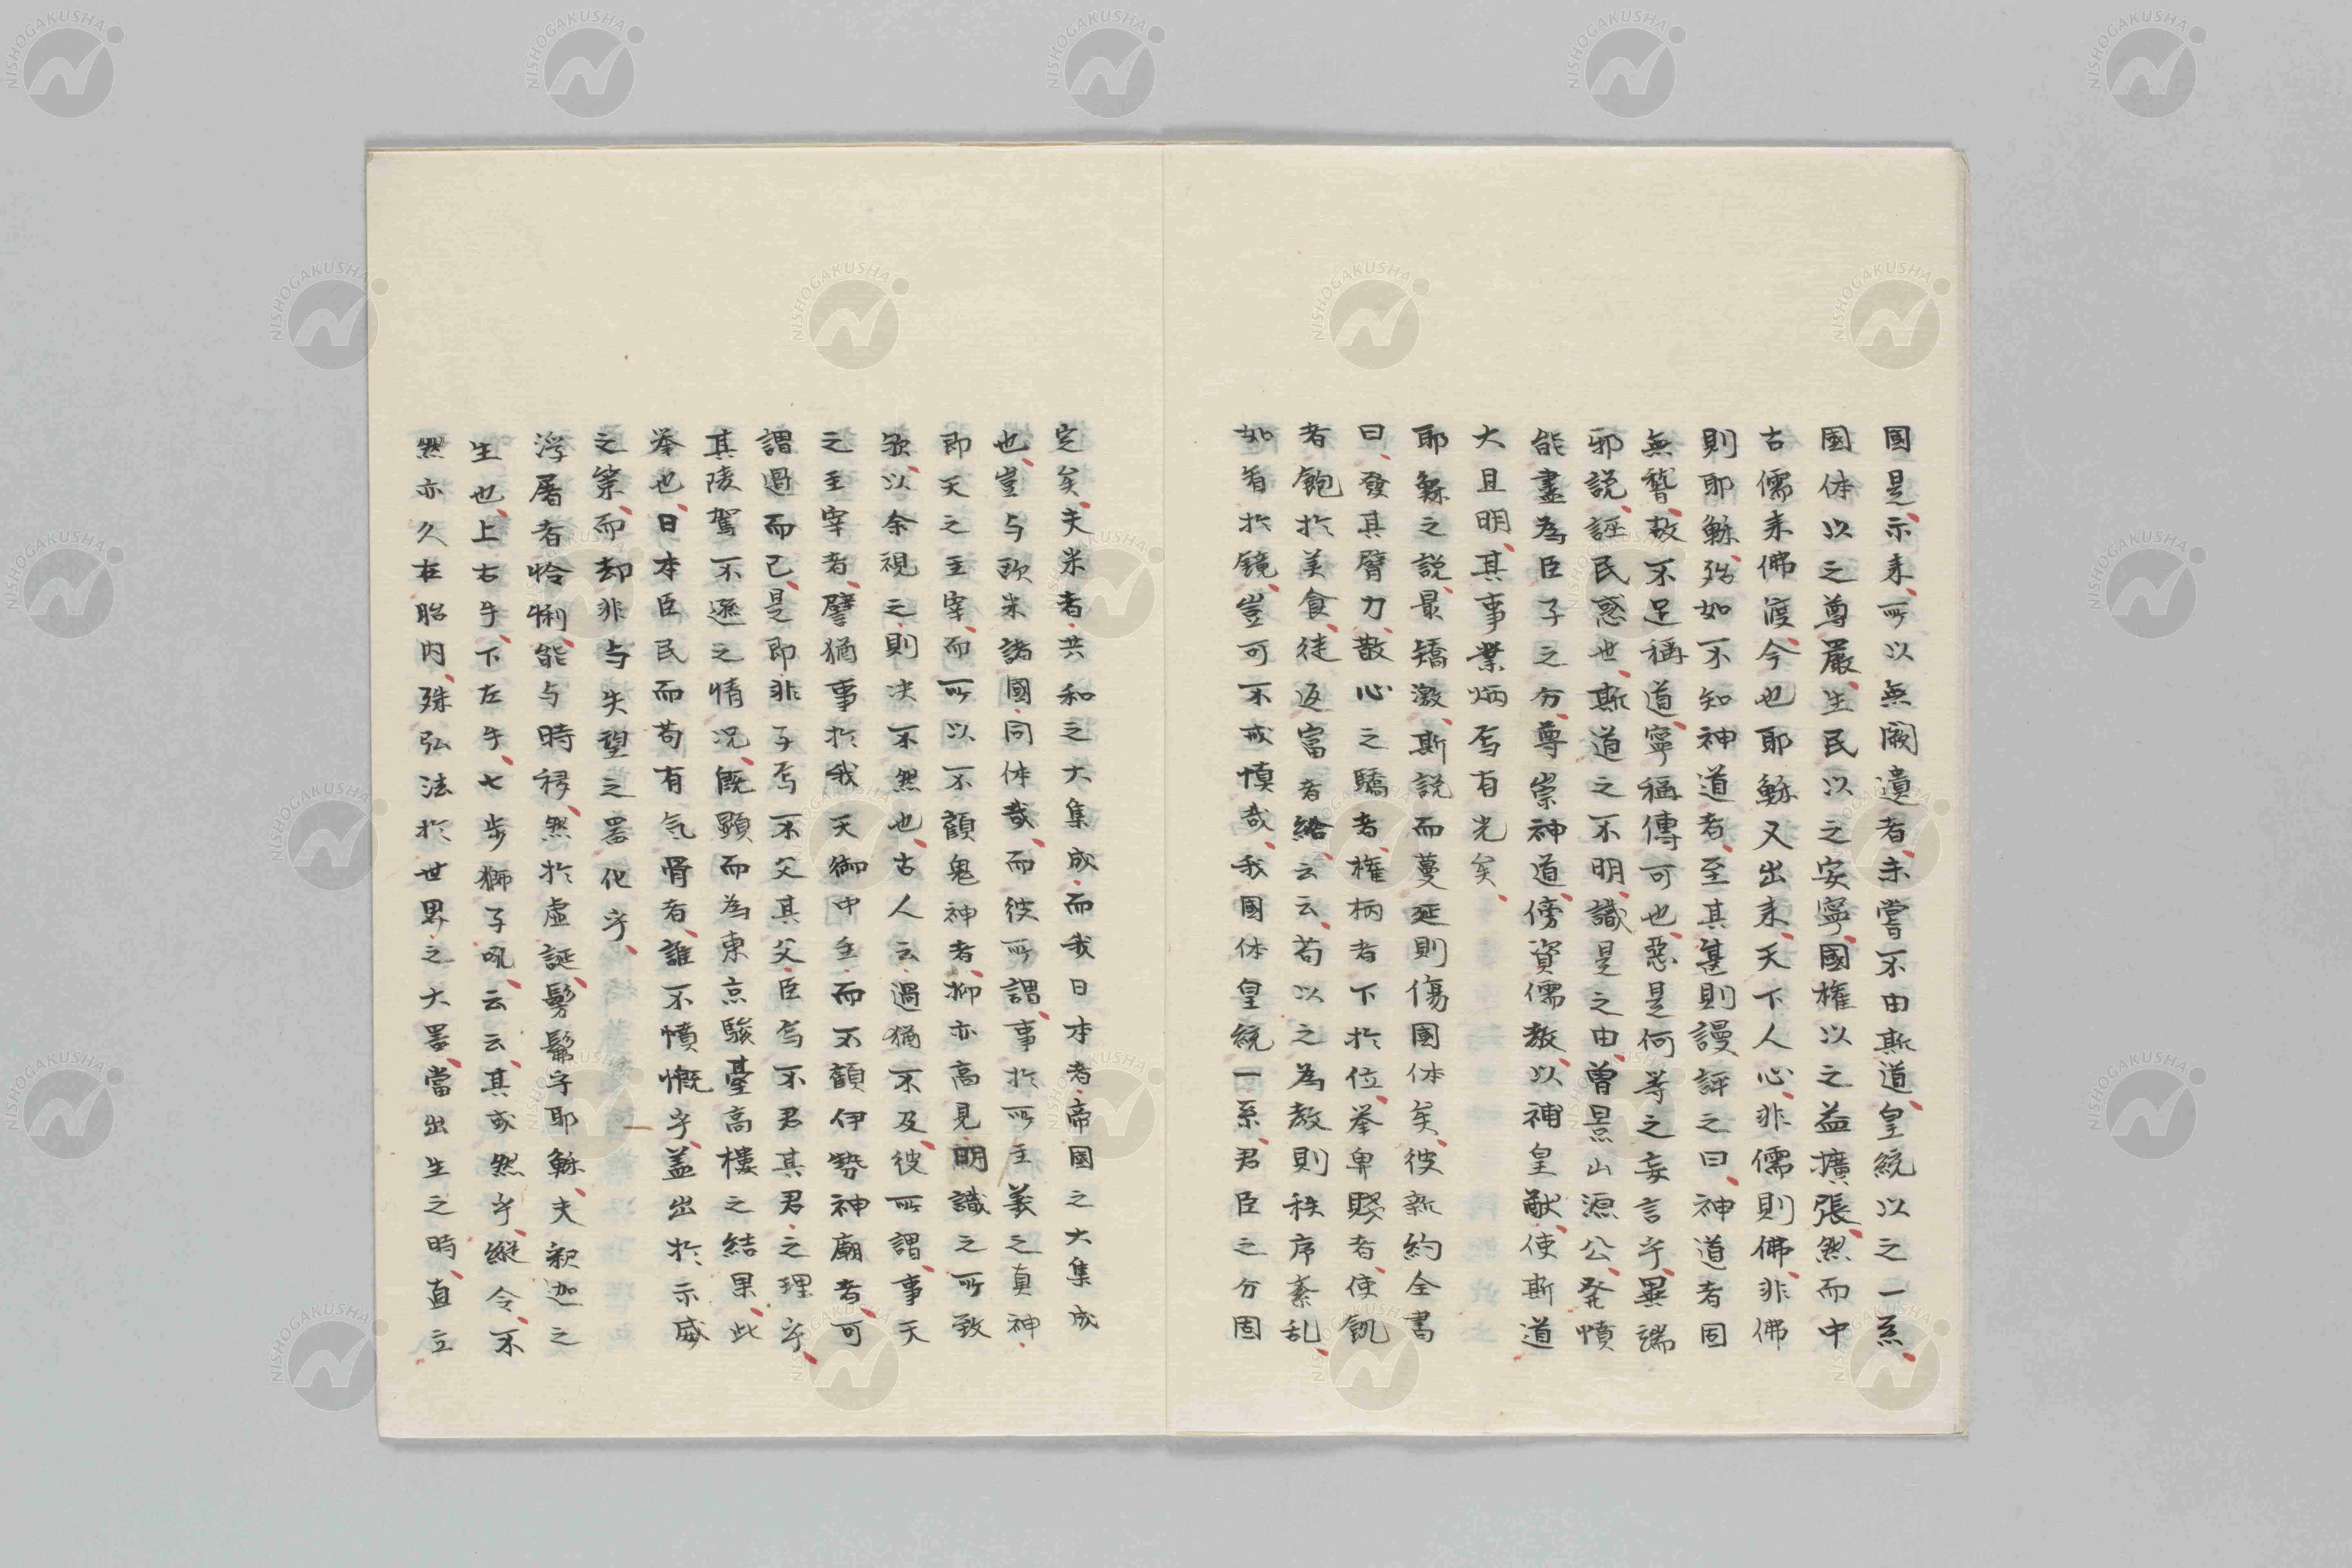 國是、示来、所以無闕遺者、未嘗不由斯道、皇統以之一系、
国体以之尊嚴、生民以之安寧、國権以之益擴張、然而中
古儒来佛渡、今也耶穌又出来、天下人心、非儒則佛、非佛
則耶穌、殆如不知神道者、至其甚則謾評之曰、神道者固
無聱敖不足稱道、寧稱傳可也、惡是何等之妄言乎、異端
邪説、誣民惑世、斯道之不明、識是之由、曽景山源公、発憤
能盡為臣子之分、尊崇神道、傍資儒教、以補皇猷、使斯道
大且明、其事業炳焉有光矣、
耶穌之説、最矯激、斯説而蔓延則傷國体矣、彼新約全書
曰、發其臂力、散心之驕者、権柄者下於位、挙卑賤者、使飢
者飽於美食、徒返富者給云云、苟以之為教則秩序紊乱、
如看於鏡、豈可不戒慎哉、我國体皇統一系、君臣之分固
定矣、夫米者、共和之大集成、而我日本者、帝國之大集成
也、豈与欧米諸國、同体哉、而彼所謂事於所主義之真神、
即天之主宰、而所以不顧鬼神者、抑亦高見明識之所致
欤、以余視之、則决不然也、古人云、過猶不及、彼所謂事天
之主宰者、譬猶事於我天御中主、而不顧伊勢神廟者、可
謂過而已、是即非子焉不父其父、臣焉不君其君、之理乎、
其陵駕不遜之情况、既顕而為東京駿臺高樓之結果、此
挙也、日本臣民而苟有気骨者、誰不憤慨乎、盖出於示威
之策、而却非与失望之署他乎、
浮屠者恰悧、能与時移、然於虚誕、髣髴乎耶穌、夫釈迦之
生也、上右手、下左手、七歩獅子吼、云云、其或然乎、縦令、不
然亦久在胎内、殊弘法於世界之大器、當出生之時、直立